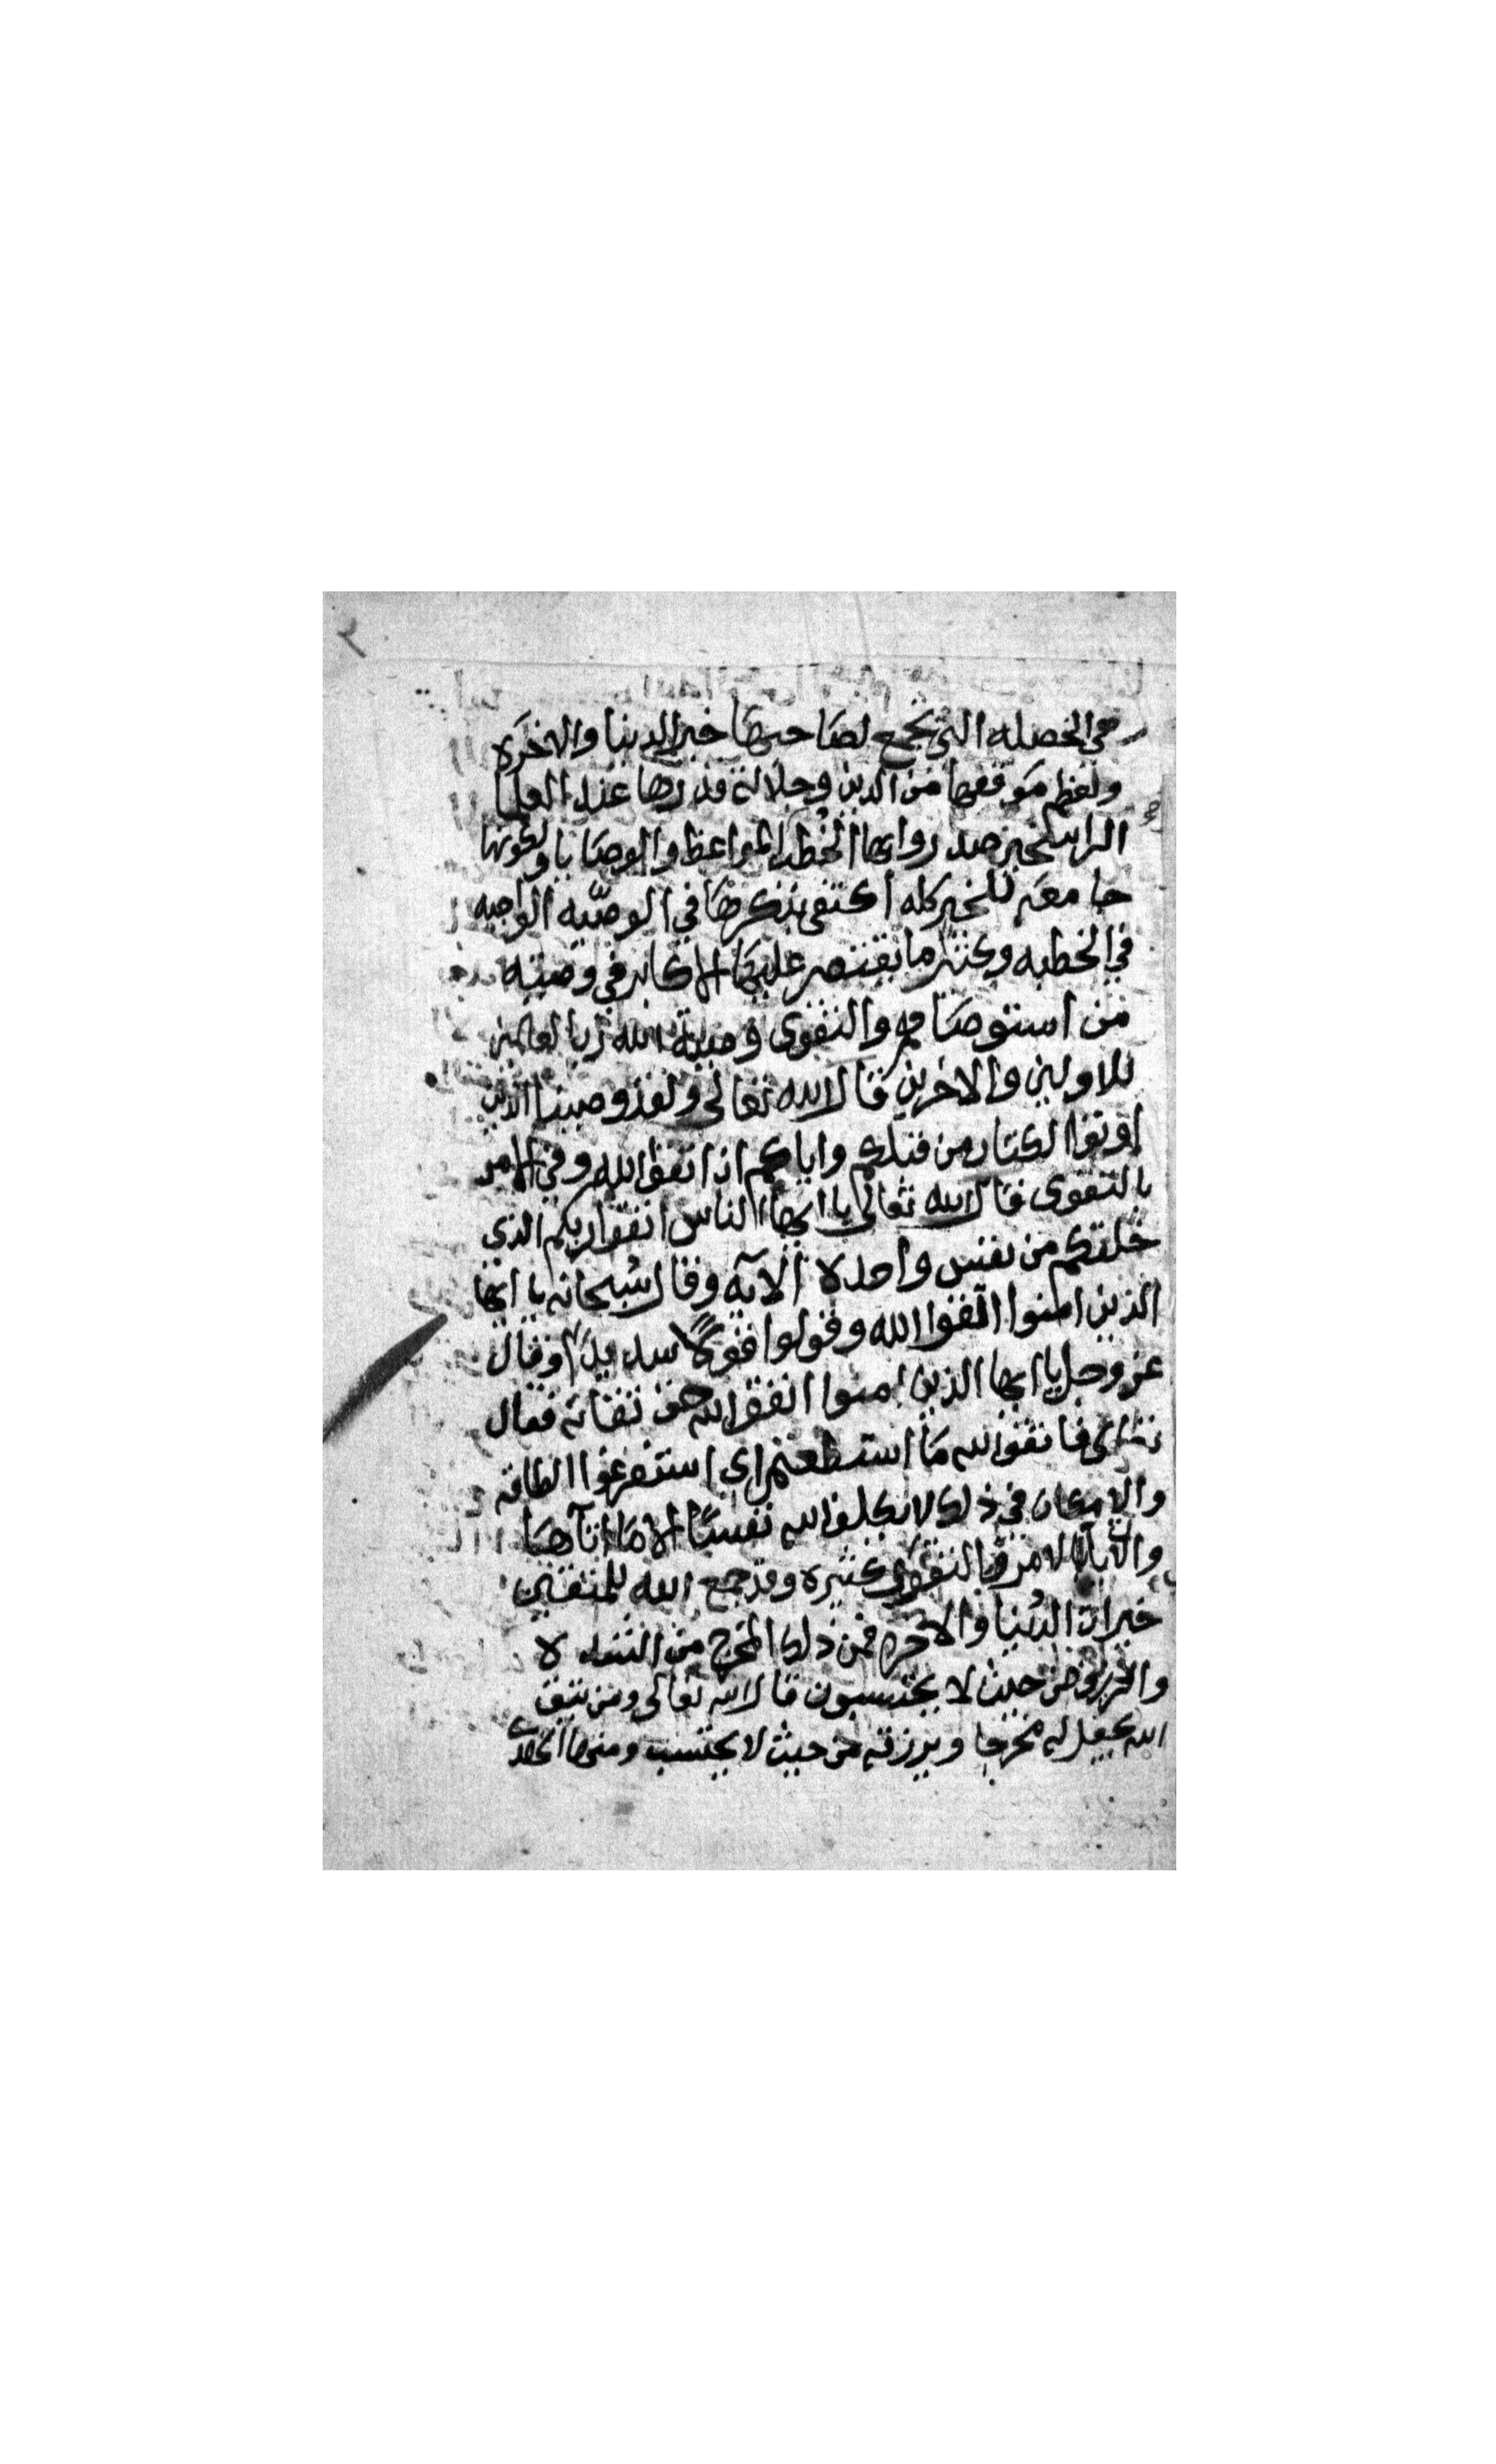 ٢
هي الخصله التي تجمع لصاحبها خير الدنيا والاخره
ولعظم موقعها من الدين وجلالة قدرها عند العلما
الراسخين صدروا بها الخطب والمواعظ والوصايا ولكونها
جامعه للخير كله اكتفى بذكرها في الوصيّه الواجبه
في الخطبه وكثير ما يقتصر عليها الاكابر في وصيته
من استوصاهم والتقوى وصية الله رب العالمين
للاولين والاخرين قال الله تعالى ولقد وصينا الذين
اوتوا الكتاب من قبلكم واياكم ان اتقوا الله وفي الامر
بالتقوى قال الله تعالى يا ايها الناس اتقوا ربكم الذي
خلقكم من نفس واحده الآيه وقال سُبحانه يا ايها
الذين امنوا اتقوا الله وقولوا قولًا سديدًا وقال
عز وجل يا ايها الذين امنوا اتقوا الله حق تقاته فقال
تعالى فاتقوا الله ما استطعتم اي استفرغوا الطاقه
والامكان في ذلك لا يكلف الله نفسًا الا ما اتآها
والآيات الامر بالتقوى كثيره وقد جمع الله للمتقين
خيرات الدُنيا والاخره فمن ذلك المخرج من الشده
والرزق من حيث لا يحتسبون قال الله تعالى ومن يتق
الله يجعل له مخرجا ويرزقه من حيث لا يحتسب ومنها